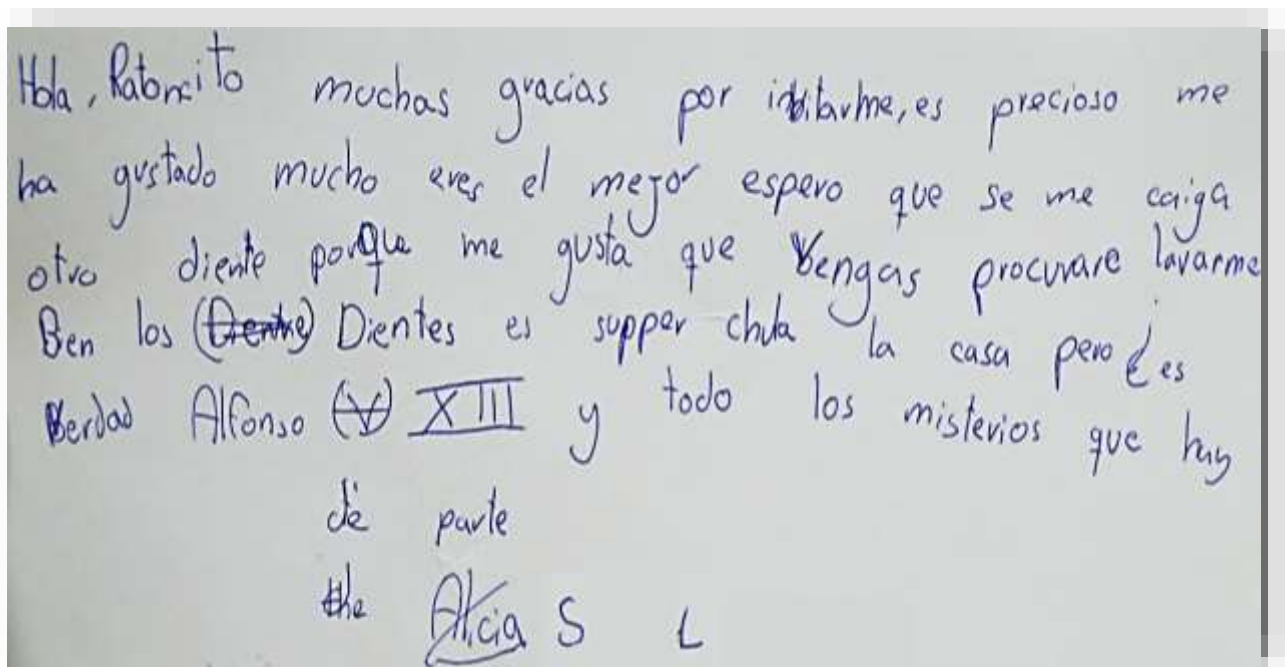 Hola, Ratoncito muchas gracias por invitarme, es precioso me
ha gustado mucho eres el mejor espero que se me caiga
otro diente porque me gusta que vengas procurare lavarme
Ben los (Diente) Dientes es supper chula la casa pero ¿es
verdad Alfonso (V) XIII y todo los misterios que hay
de parte
de Alicia S L